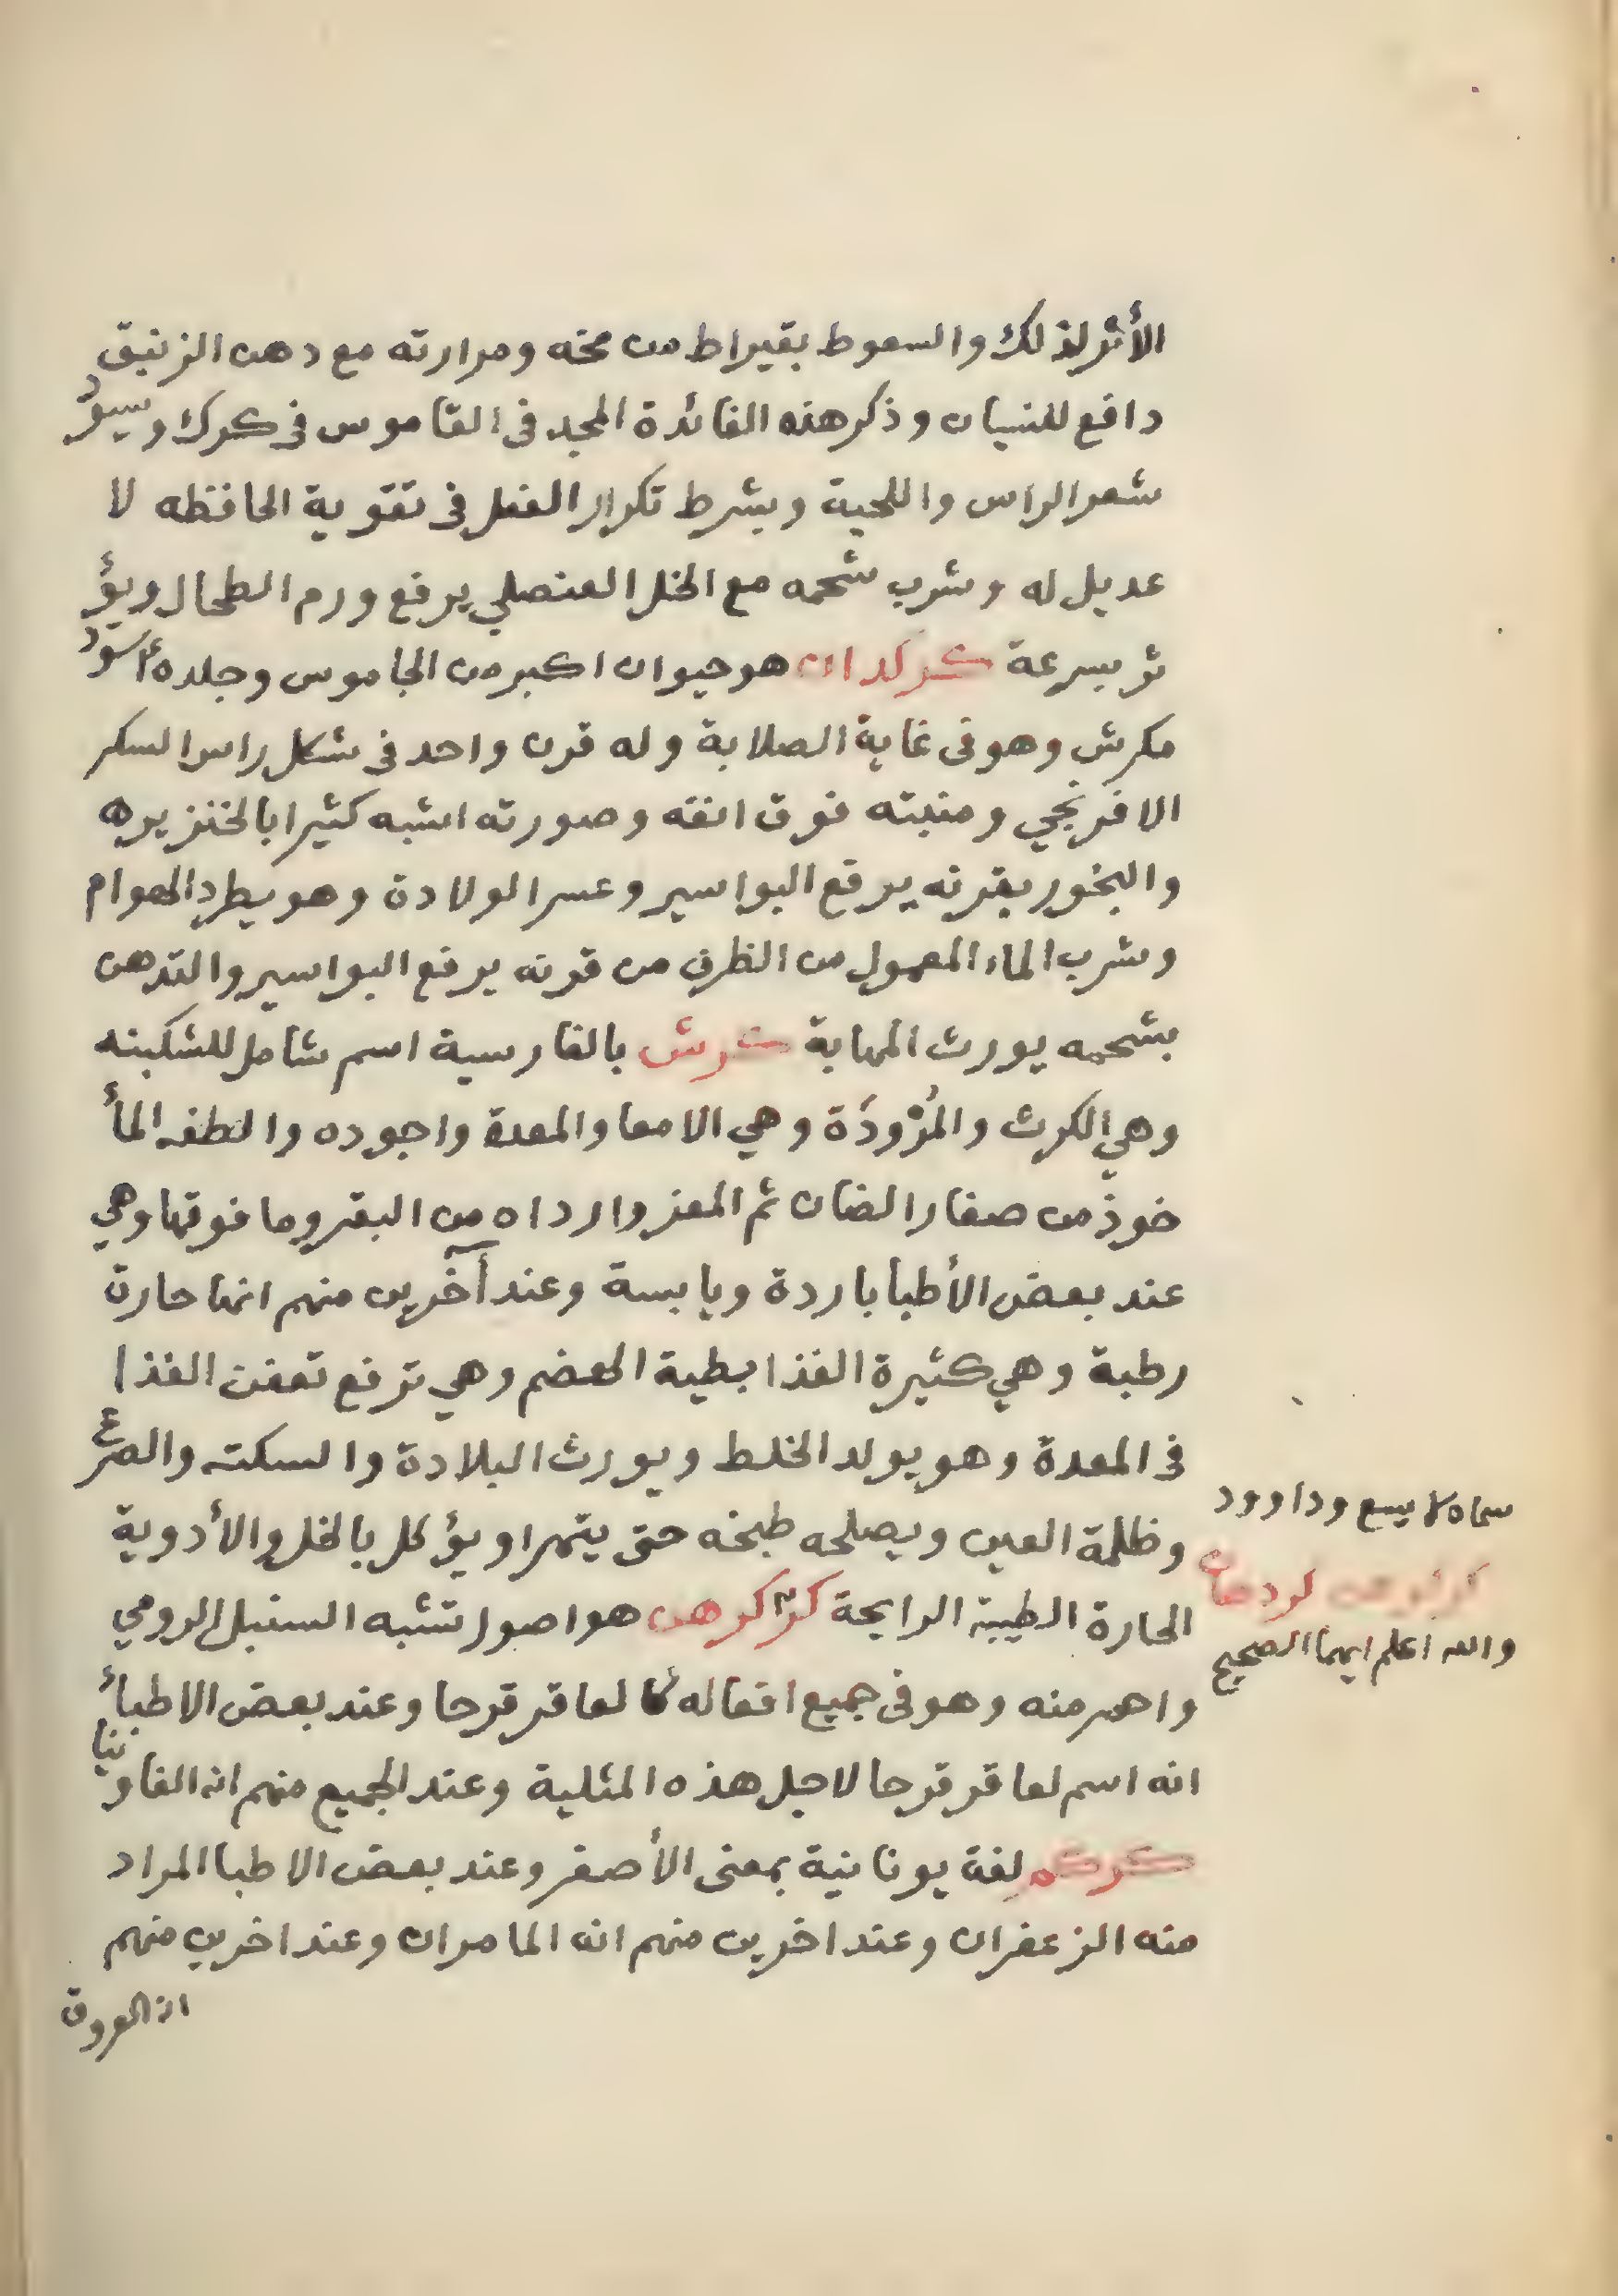 الأثر لذلك والسعوط بقيراط من مخه ومرارته مع دهن الزنبق
دافع للنسيان وذكر هذه الفائدة المجد فى القاموس فى كرك ويسود
شعر الراس واللحية وبشرط تكرار الفعل فى تقوية الحافظه لا
عديل له وشرب شحمه مع الخل العنصلي يرفع ورم الطحال ويؤ
ثر بسرعة كركدان هو حيوان اكبر من الجاموس وجلده أسود
مكرش وهو فى غاية الصلابة وله قرن واحد فى شكل راس السكر
الافرنجي ومنبته فوق انفه وصورته اشبه كثيرا بالخنزيره
والبخور بقرنه يرفع البواسير وعسر الولادة وهو يطرد الهوام
وشرب الماء المعمول من الظرف من قرنه يرفع البواسير والتدهن
بشحمه يورث المهابة كرش بالفارسية اسم شامل للشكبنه
وهي الكرث والمَزْودَة وهي الامعا والمعدة واجوده والطفه المأ
خوذ من صغار الضان ثم المعز وارداه من البقر وما فوقها وهي
عند بعض الأطبا باردة ويابسة وعند آخرين منهم انها حارة
رطبة وهي كثيرة الغذا بطية الهضم وهي ترفع تعفن الغذا
فى المعدة وهو يولد الخلط ويورث البلادة والسكته والصرع
وظلمة العين ويصلحه طبخه حتى يتهرا ويؤكل بالخل والأدوية
الحارة الطيبة الرايحة كركرهن هو اصول تشبه السنبل الرومي
واحمر منه وهو فى جميع افعاله كالعاقر قرحا وعند بعض الاطبأ
انه اسم لعاقر قرحا لاجل هذه المثلية وعند الجميع منهم انه الفاونيا
كركم لغة يونانية بمعنى الأصفر وعند بعض الاطبا المراد
منه الزعفران وعند اخرين منهم انه المامران وعند اخرين منهم
انه العروق
سماه لا يسع وداوود
والله اعلم ايهما الصحيح